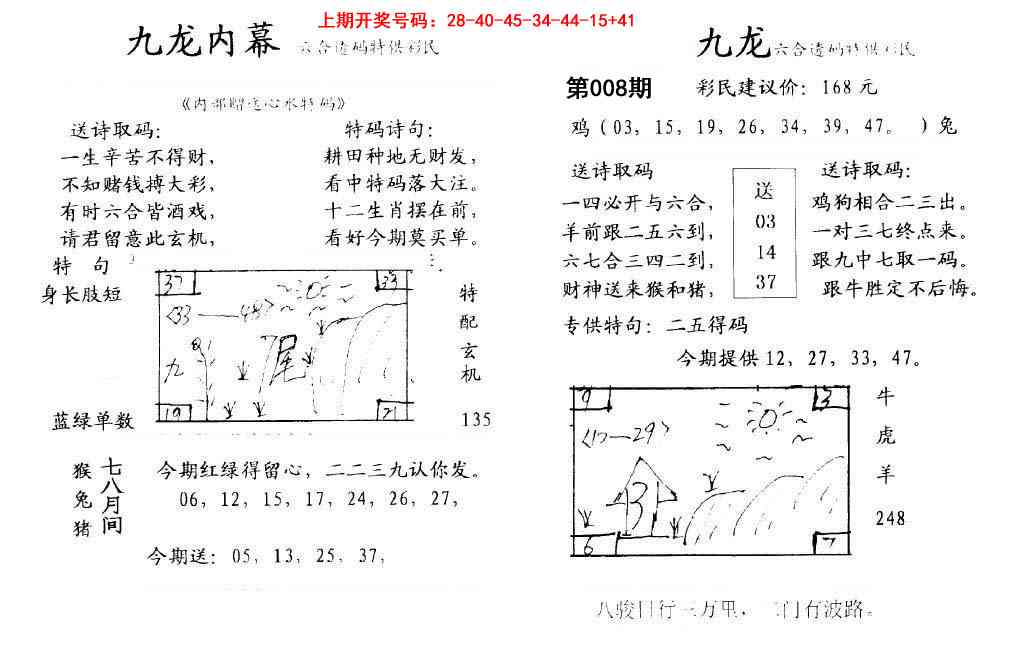 上期开奖号码：28-40-45-34-44-15+41
九龙内幕 六合透码特供彩民
《内部赠送心水特码》
送诗取码：
一生辛苦不得财，
不知赌钱搏大彩，
有时六合皆酒戏，
请君留意此玄机，
特码诗句：
耕田种地无财发，
看中特码落大注。
十二生肖摆在前，
看好今期莫买单。
特 句
身长肢短
蓝绿单数
37
33
<33—48>
九
尾
19
21
特配玄机
135
猴兔猪
七八月间
今期红绿得留心，二二三九认你发。
06，12，15，17，24，26，27，
今期送：05，13，25，37，
九龙六合透码特供彩民
第008期 彩民建议价：168元
鸡（03，15，19，26，34，39，47。）兔
送诗取码
一四必开与六合，
羊前跟二五六到，
六七合三四二到，
财神送来猴和猪，
送
03
14
37
送诗取码：
鸡狗相合二三出。
一对三七终点来。
跟九中七取一码。
跟牛胜定不后悔。
专供特句：二五得码
今期提供12，27，33，47。
9
3
<17—29>
13
6
7
牛
虎
羊
248
八骏日行三万里，门石波路。